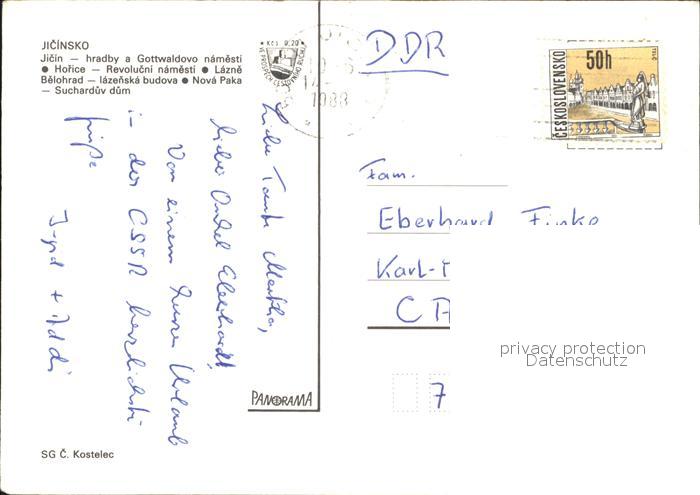 JIČÍNSKO
Jičín — hradby a Gottwaldovo náměstí
● Hořice — Revoluční náměstí ● Lázně
Bělohrad — lázeňská budova ● Nová Paka
— Suchardův dům
Kčs 0,20
1988
DDR
ČESKOSLOVENSKO
50h
TELČ
Liebe Tante Martha,
lieber Onkel Eberhardt,
Von einem kurzen Urlaub
in der CSSR herzlichste
Grüße
Fam.
Eberhard
Karl-
PANORAMA
7
privacy protection
Datenschutz
SG Č. Kostelec